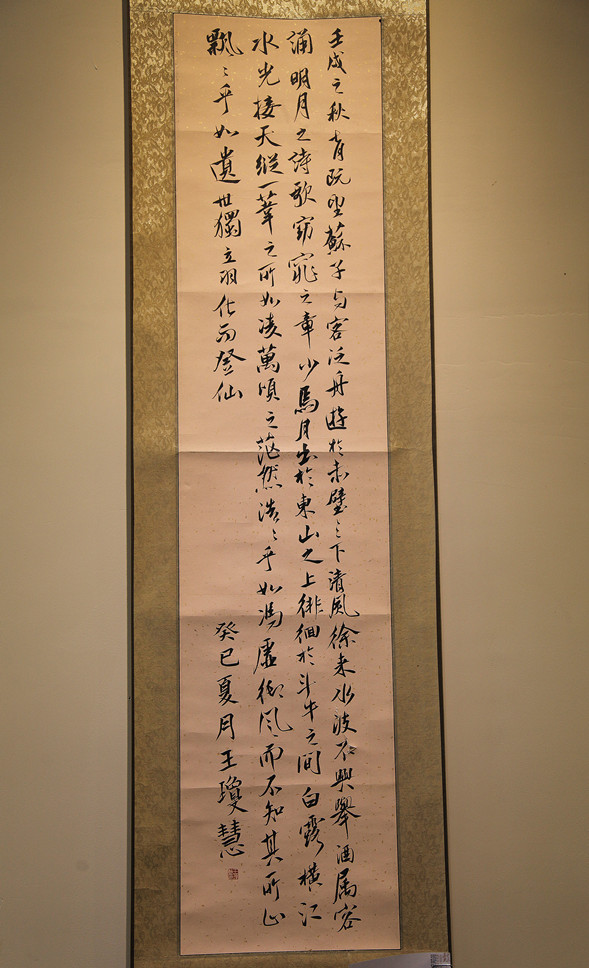 壬戌之秋七月既望蘇子与客泛舟遊於赤壁之下清風徐来水波不興舉酒属客
誦明月之詩歌窈窕之章少焉月出於東山之上徘徊於斗牛之間白露橫江
水光接天縱一葦之所如凌萬頃之茫然浩々乎如馮虛御風而不知其所止
飄々乎如遺世獨立羽化而登仙
癸巳夏月王瓊慧